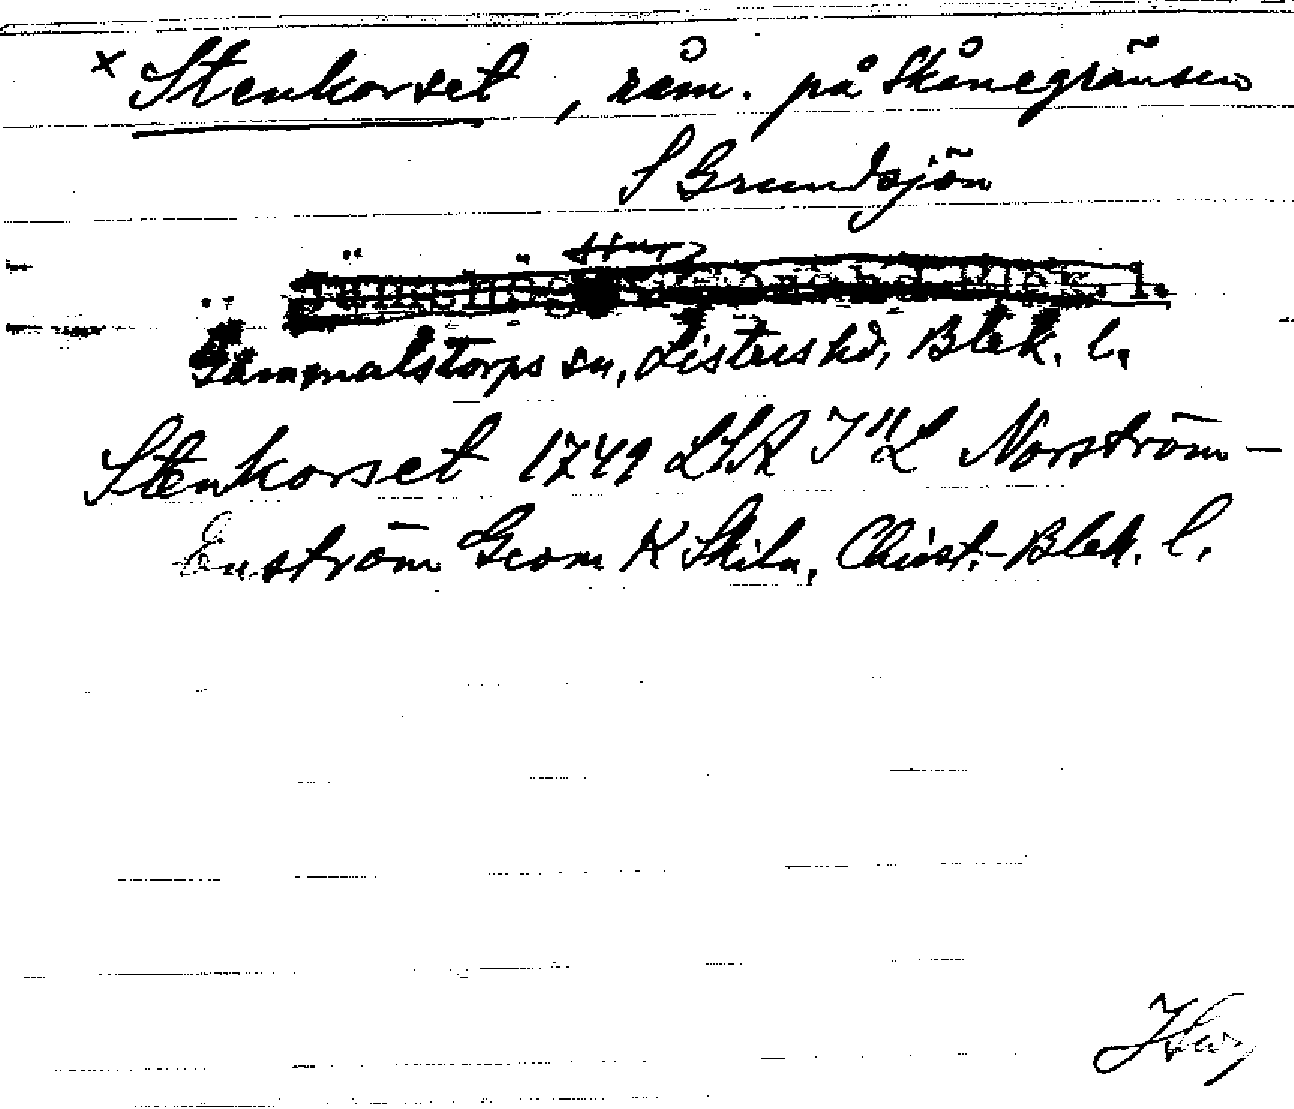 × Stenkorset, råm. på Skånegränsen
S Grundsjön
Gammalstorps sn, Listers hd, Blek. l.
Stenkorset 1749 LSA Norström -
Enström Geom K Skiln, Christ.-Blek. l.